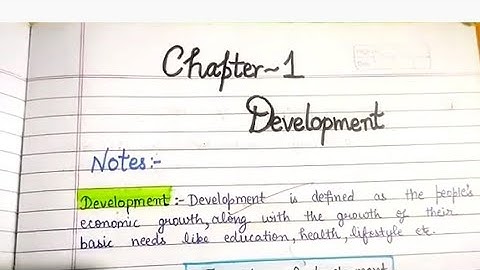 Chapter~1
Development
Notes:-
Development :- Development is defined as the people's
economic growth, along with the growth of their
basic needs like education, health, lifestyle etc.